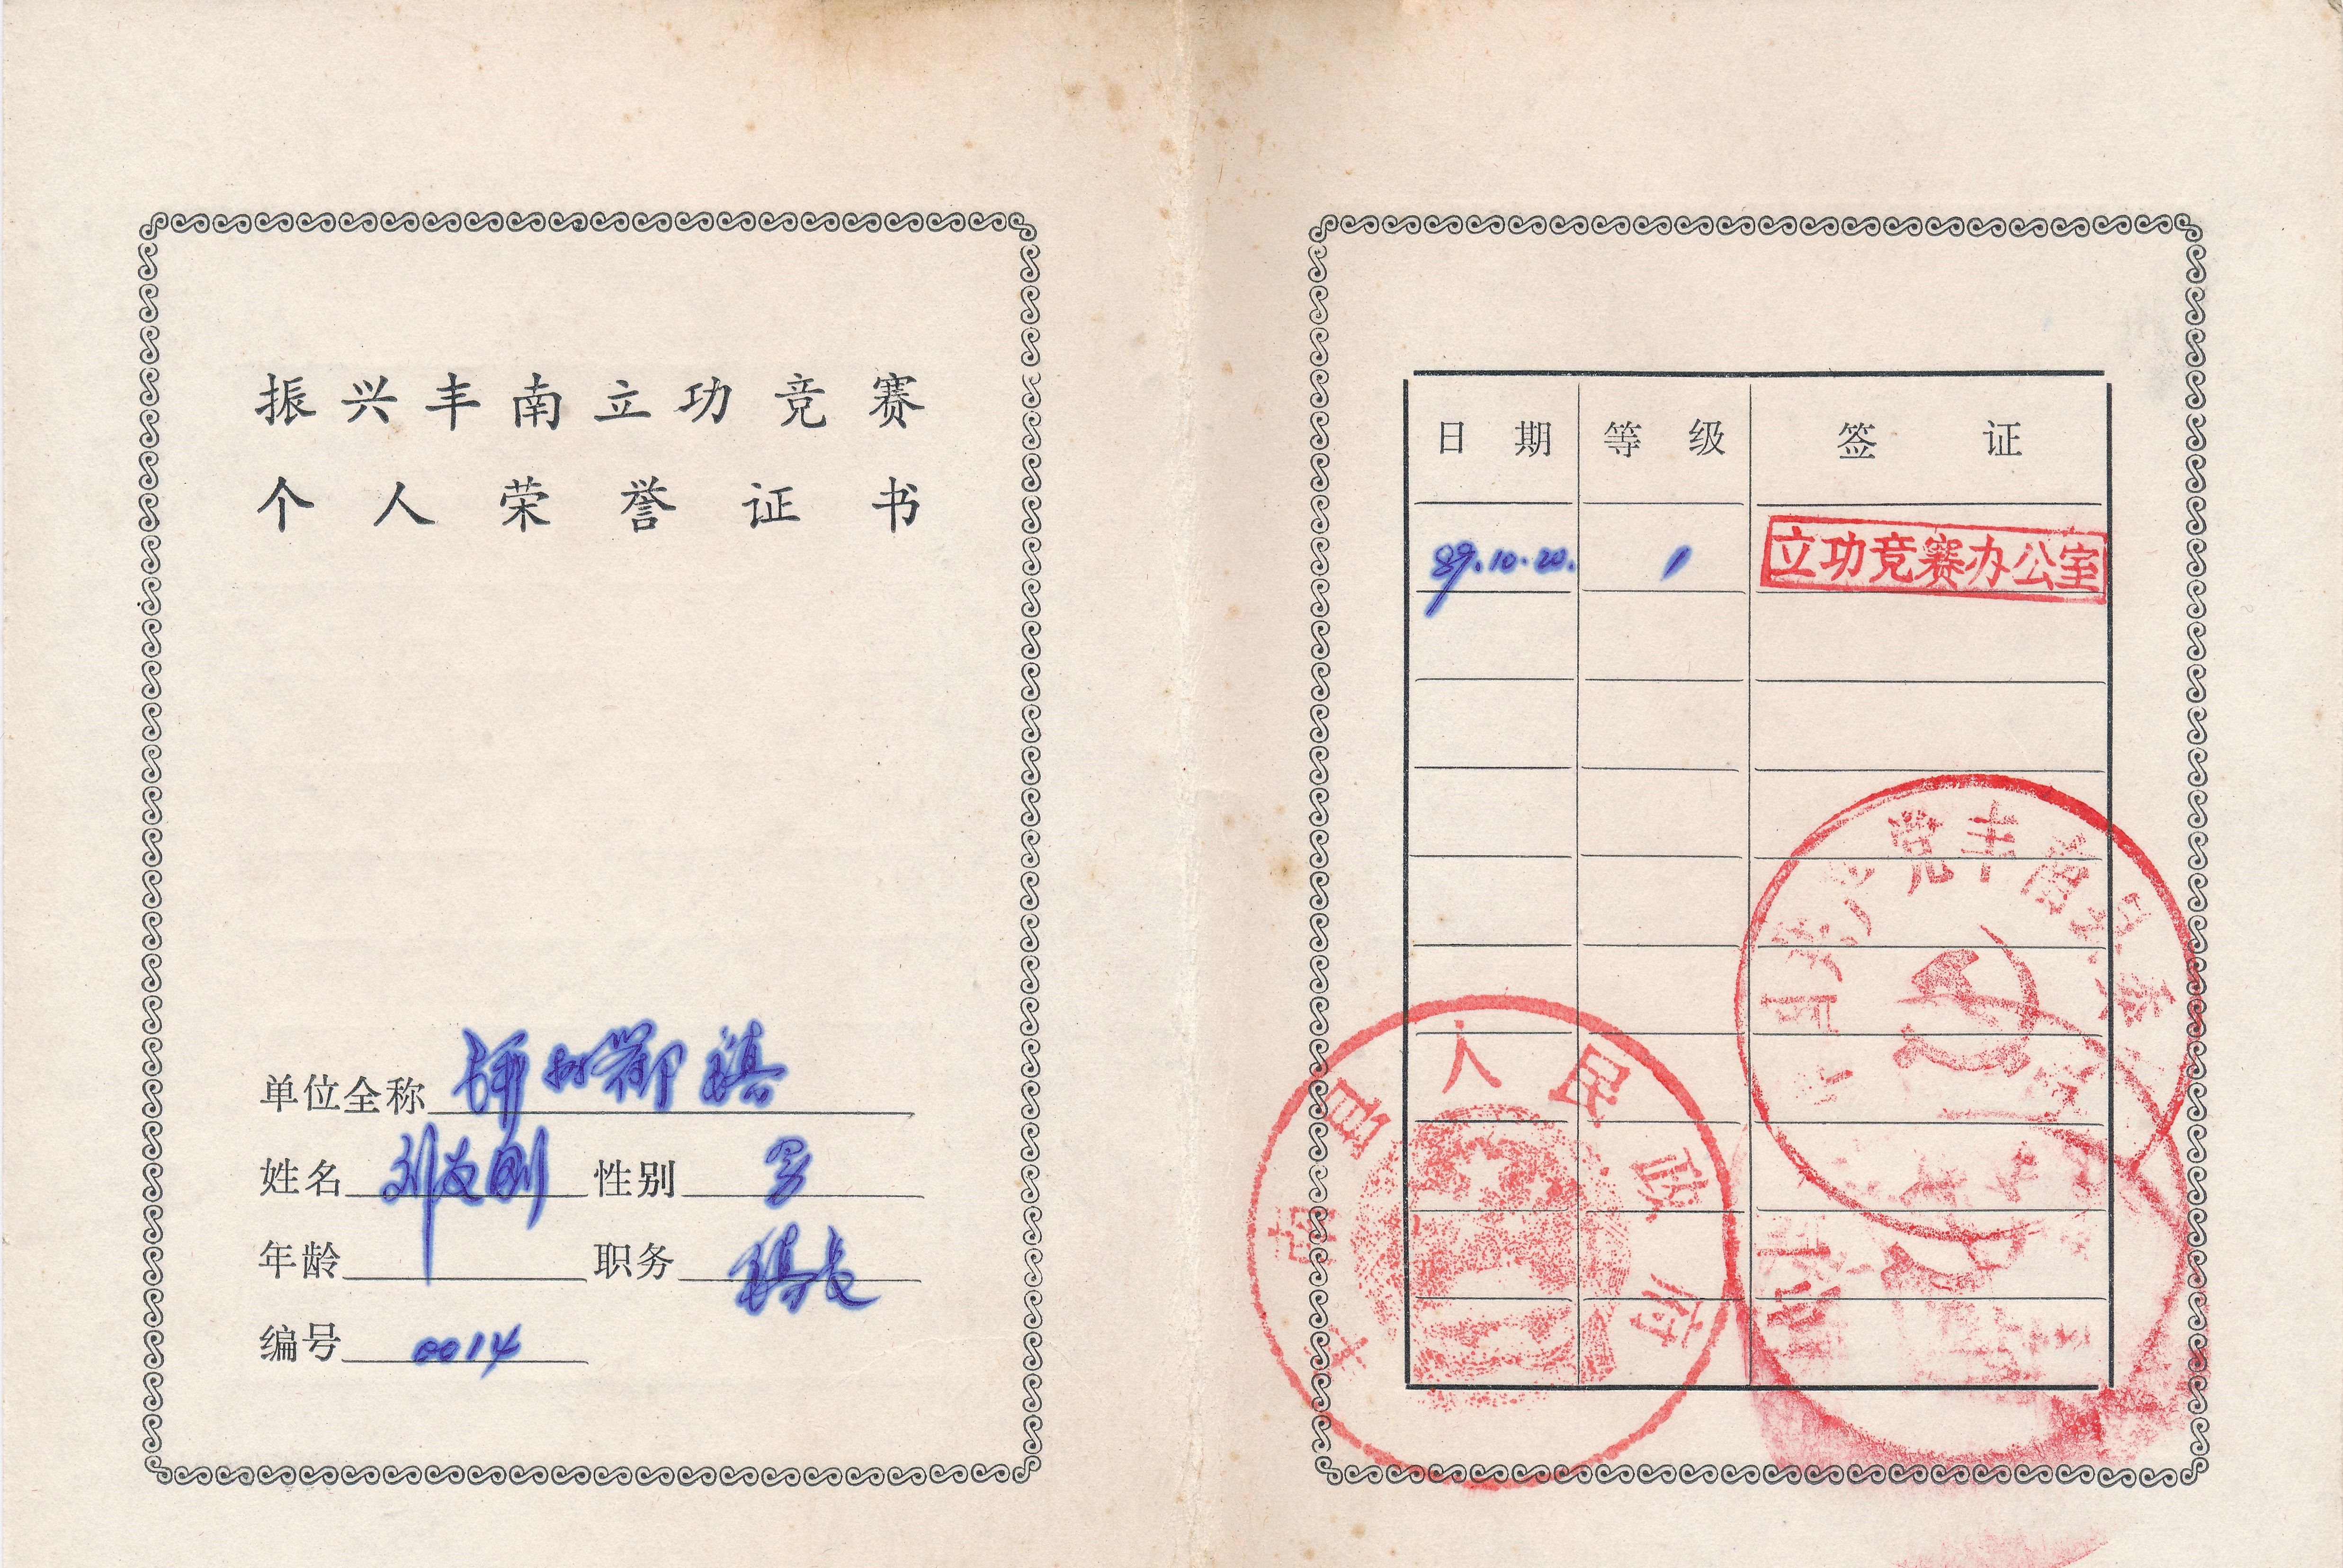 振兴丰南立功竞赛
个人荣誉证书
单位全称
姓名 刘友刚 性别 男
年龄 职务 镇长
编号 0014
日期 等级 签证
89.10.20. 1 立功竞赛办公室
县人民政府